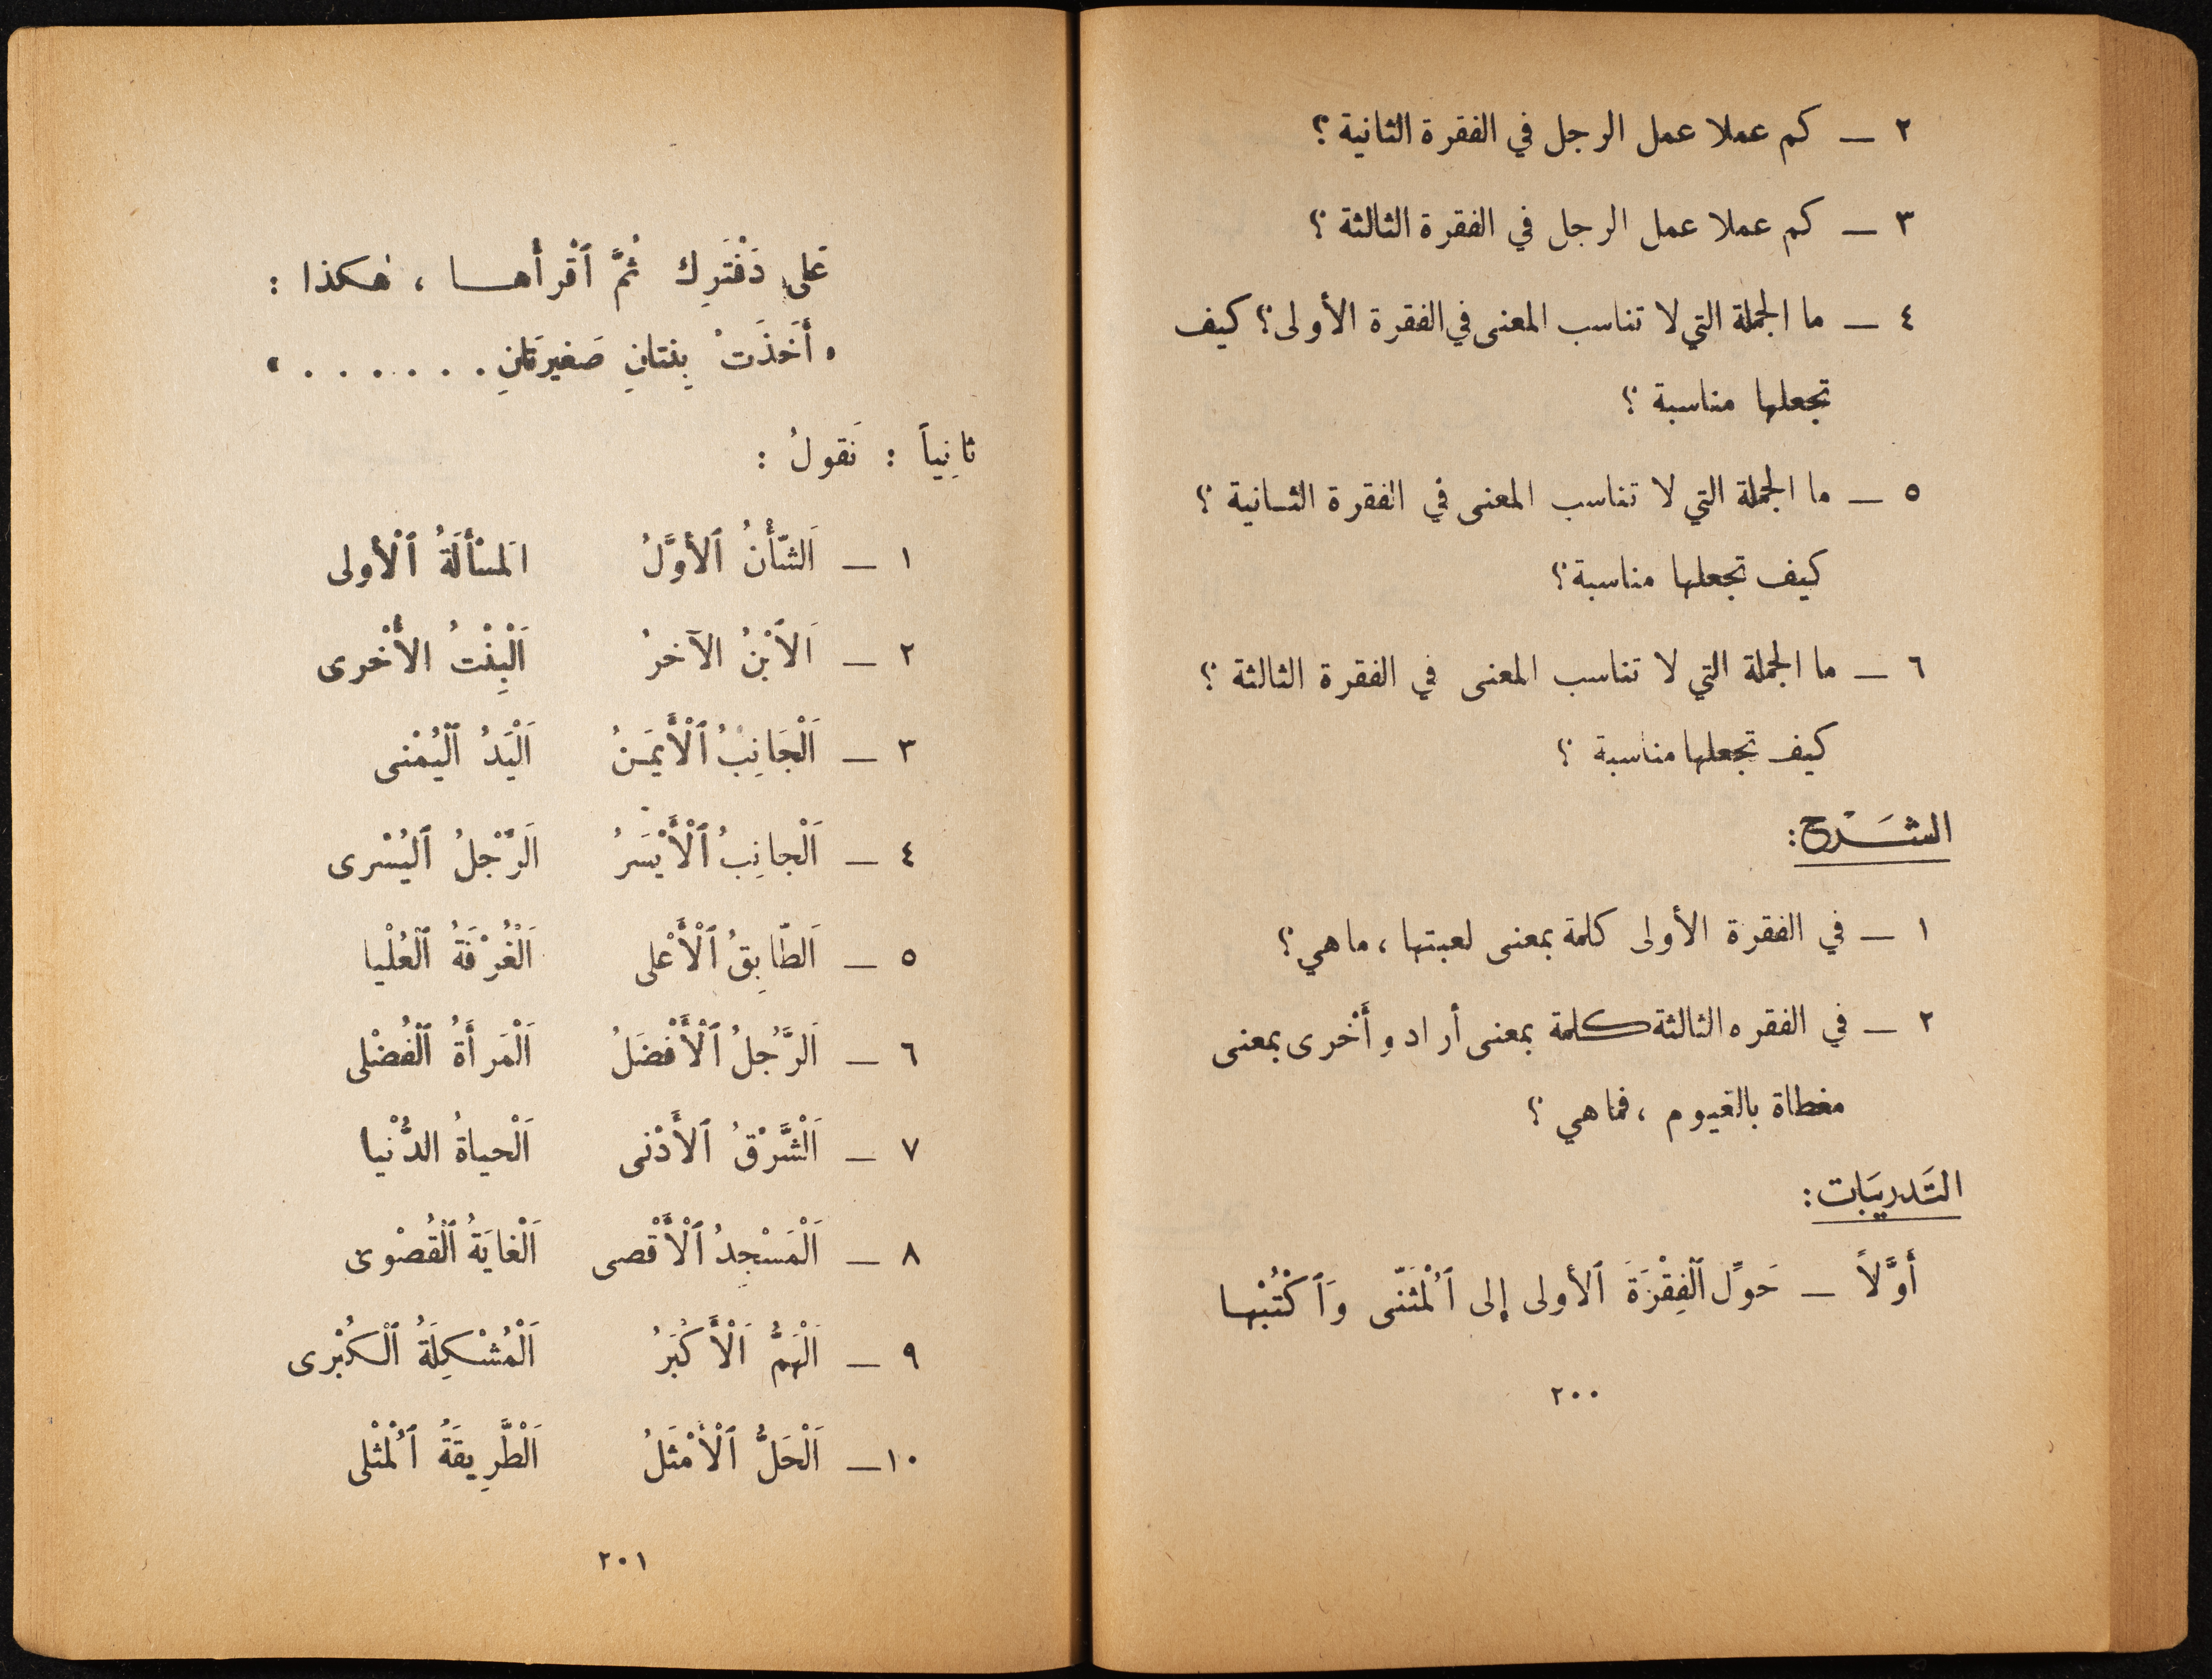 ٢ – كم عملا عمل الرجل في الفقرة الثانية ؟
٣ – كم عملا عمل الرجل في الفقرة الثالثة ؟
٤ – ما الجملة التي لا تناسب المعنى في الفقرة الأولى ؟ كيف
تجعلها مناسبة ؟
٥ – ما الجملة التي لا تناسب المعنى في الفقرة الثانية ؟
كيف تجعلها مناسبة ؟
٦ – ما الجملة التي لا تناسب المعنى في الفقرة الثالثة ؟
كيف تجعلها مناسبة ؟
الشَرْح :
١ – في الفقرة الأولى كلمة بمعنى لعبتها ، ما هي ؟
٢ – في الفقره الثالثة كلمة بمعنى أراد وأُخرى بمعنى
مغطاة بالغيوم ، فما هي ؟
التَدريبَات :
أَوَّلاً – حَوِّل ٱلْفِقْرَةَ ٱلأولى إلى ٱلْمُثَنّى وَٱكْتُبْها
٢٠٠
عَلى دَفْتَرِك ثُمَّ ٱقْرأْهـا ، هٰكذا :
« أَخَذَتْ بِنتانِ صَغيرَتانِ . . . . . . »
ثانِياً : نَقولُ :
١ – اَلشّأْنُ ٱلأوَّلُ اَلمسْألَةُ ٱلْأولى
٢ – اَلاٱبْنُ الآخرُ اَلْبِنْتُ الأُخْرى
٣ – اَلْجَانِبُ ٱلْأَيمَـنُ اَلْيَدُ ٱلْيُمْنى
٤ – اَلْجانِبُ ٱلْأَيْسَرُ اَلرِّجْلُ ٱليُسْرى
٥ – اَلطّابِقُ ٱلْأَعْلى اَلْغُرْفَةُ ٱلْعُلْيا
٦ – اَلرَّجُلُ ٱلْأَفْضَلُ اَلْمَرأَةُ ٱلْفُضْلى
٧ – اَلْشَّرْقُ ٱلأَدْنى اَلْحياةُ الدُّنْيا
٨ – اَلْمَسْجِدُ ٱلْأَقْصى اَلْغايَةُ ٱلْقُصْوى
٩ – اَلْهَمُّ اَلْأَكْبَرُ اَلْمُشْكِلَةُ ٱلْكُبْرى
١٠– اَلْحَلُّ ٱلْأَمْثَلُ اَلْطَّرِيقَةُ ٱلْمُثْلى
٢٠١